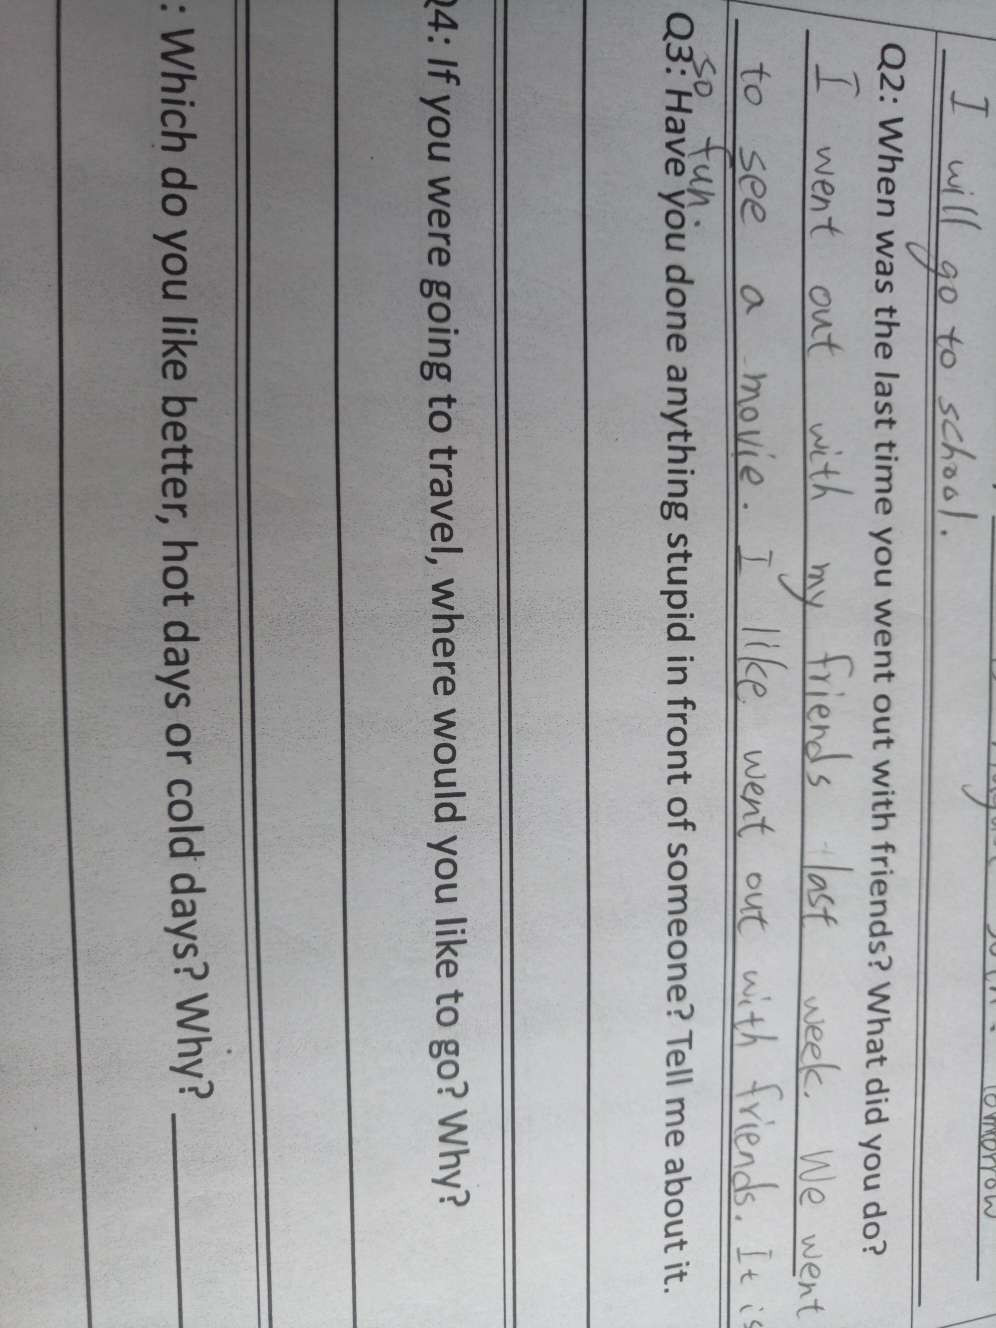 tomorrow
I will go to school.
Q2: When was the last time you went out with friends? What did you do?
I went out with my friends last week. We went
to see a movie. I like went out with friends. It is
so fun.
Q3: Have you done anything stupid in front of someone? Tell me about it.
Q4: If you were going to travel, where would you like to go? Why?
: Which do you like better, hot days or cold days? Why?